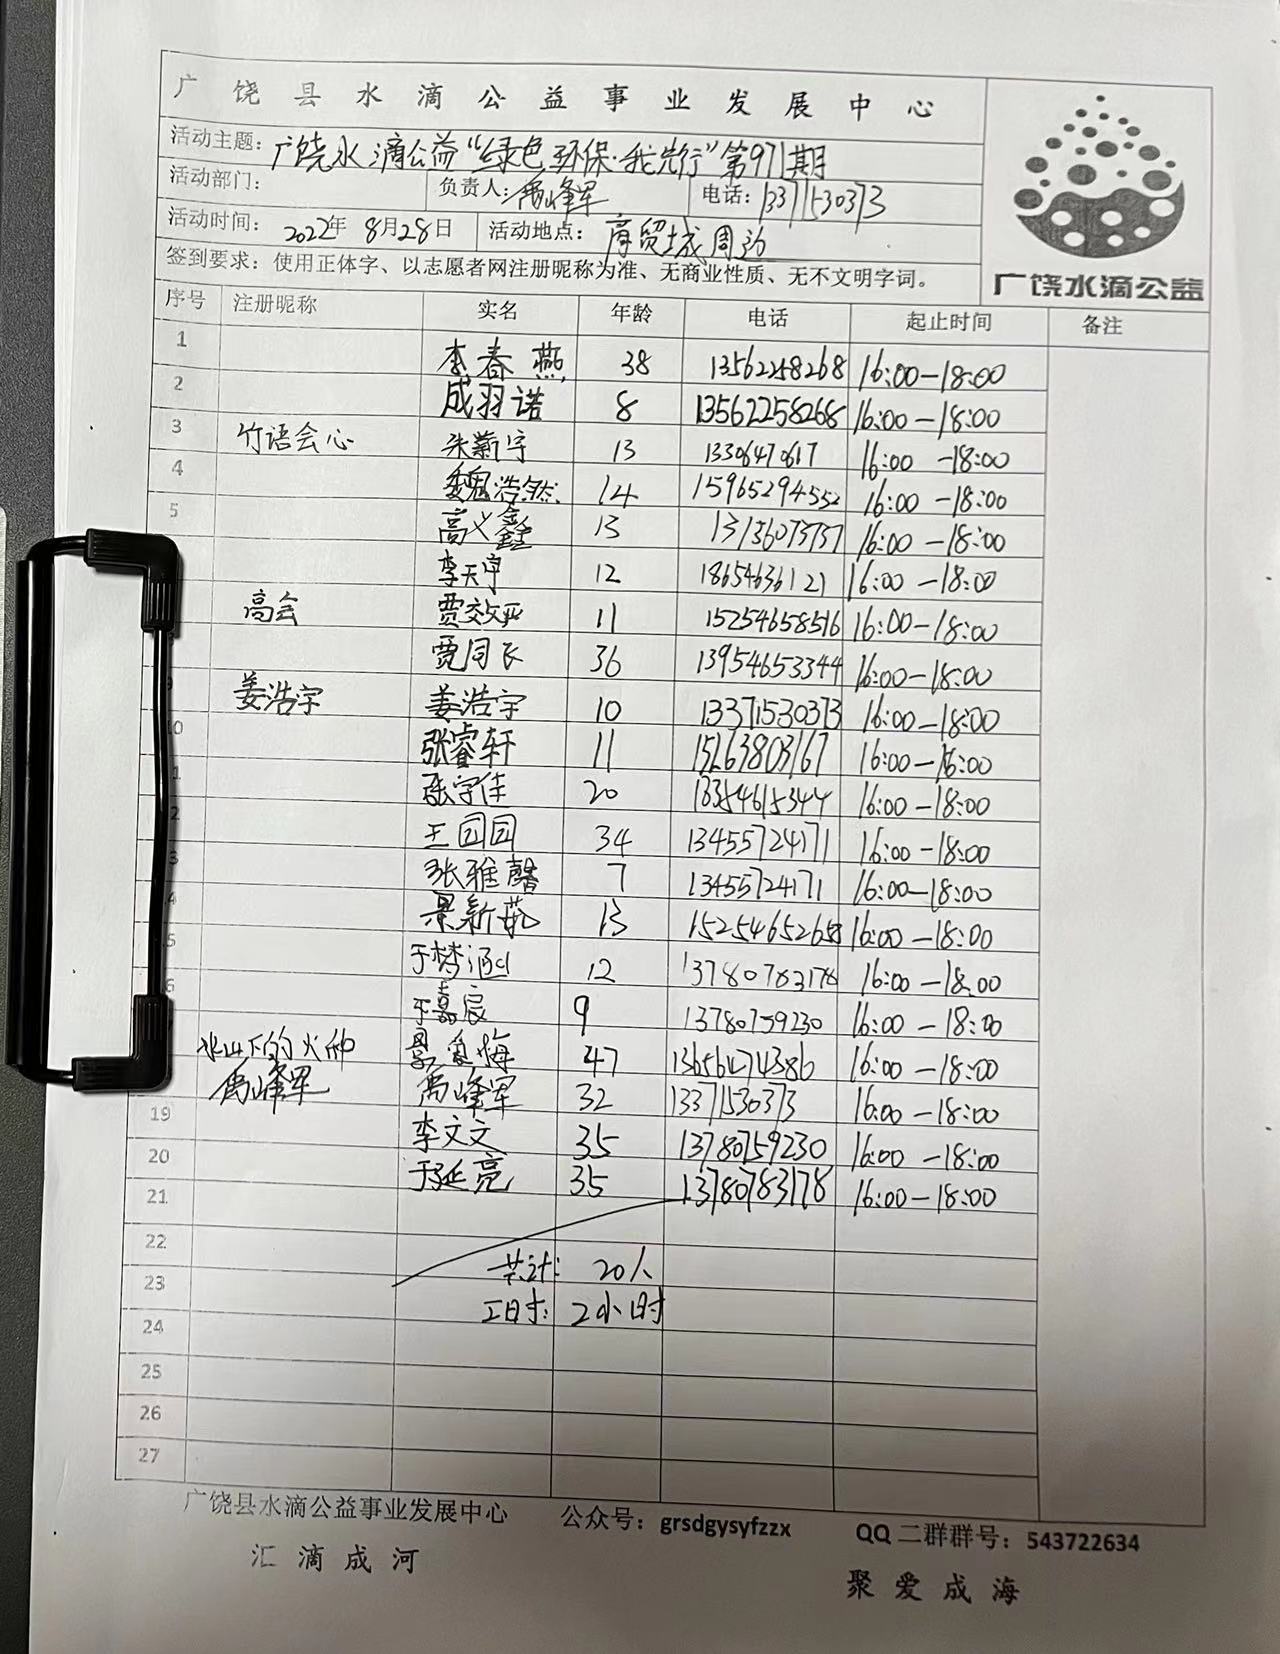 广饶县水滴公益事业发展中心
活动主题：广饶水滴公益“绿色环保·我先行”第971期
活动部门： 负责人：禹峰军 电话：13371530373
活动时间：2022年8月28日 活动地点：商贸城周边
签到要求：使用正体字、以志愿者网注册昵称为准、无商业性质、无不文明字词。
广饶水滴公益
序号 注册昵称 实名 年龄 电话 起止时间 备注
1 李春燕 38 13562258268 16:00-18:00
2 成羽诺 8 13562258268 16:00-18:00
3 竹语会心 张新宇 13 13306470617 16:00-18:00
4 魏浩然 14 15965294552 16:00-18:00
5 高义鑫 13 16:00-18:00
李天宇 12 18654636121 16:00-18:00
高会 贾效亚 11 15254658516 16:00-18:00
贾同飞 36 13954653344 16:00-18:00
9 姜浩宇 姜浩宇 10 13371530373 16:00-18:00
10 张睿轩 11 15263803167 16:00-18:00
1 张宇佳 20 13354615344 16:00-18:00
2 王团团 34 13455724171 16:00-18:00
3 张雅馨 7 13455724171 16:00-18:00
4 景新茹 13 16:00-18:00
5 于梦涵 12 13780783178 16:00-18:00
6 于嘉宸 9 13780759230 16:00-18:00
冰山下的火种 47 13656474386 16:00-18:00
禹峰军 禹峰军 32 13371530373 16:00-18:00
19 李文文 35 13780759230 16:00-18:00
20 于延亮 35 13780783178 16:00-18:00
21
22
23 共计：20人
24 工时：2小时
25
26
27
广饶县水滴公益事业发展中心 公众号：grsdgysyfzzx QQ二群群号：543722634
汇滴成河 聚爱成海